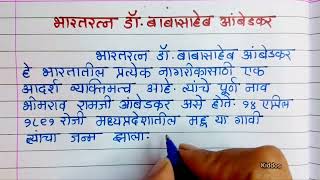 भारतरत्न डॉ. बाबासाहेब आंबेडकर
भारतरत्न डॉ. बाबासाहेब आंबेडकर
हे भारतातील प्रत्येक नागरीकासाठी एक
आदर्श व्यक्तिमत्व आहे. त्यांचे पूर्ण नाव
भीमराव रामजी आंबेडकर असे होते. १४ एप्रिल
१८९१ रोजी मध्यप्रदेशातील महू या गावी
त्यांचा जन्म झाला.